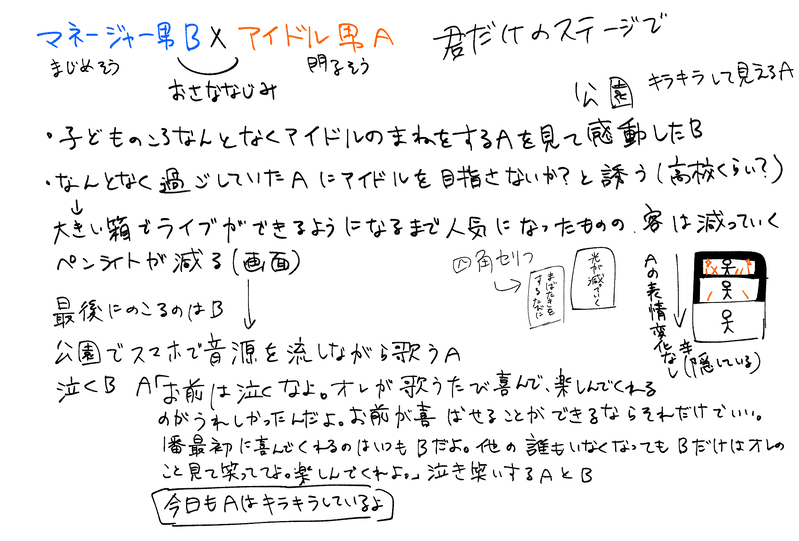 マネージャー男B × アイドル男A 君だけのステージで
まじめそう 明るそう
おさななじみ
公園 キラキラして見えるA
・子どものころなんとなくアイドルのまねをするAを見て感動したB
・なんとなく過ごしていたAにアイドルを目指さないか?と誘う(高校くらい?)
↓
大きい箱でライブができるようになるまで人気になったものの、客は減っていく
ペンライトが減る(画面)
四角セリフ
まばたきをするたびに
光が減ってく
Aの表情変化なし
(隠している)
最後にのこるのはB
公園でスマホで音源を流しながら歌うA
泣くB A「お前は泣くなよ。オレが歌うたび喜んで、楽しんでくれる
のがうれしかったんだよ。お前が喜ばせることができるならそれだけでいい。
1番最初に喜んでくれるのはいつもBだよ。他の誰もいなくなってもBだけはオレの
こと見て笑っててよ。楽しんでくれよ。」泣き笑いするAとB
今日もAはキラキラしているよ